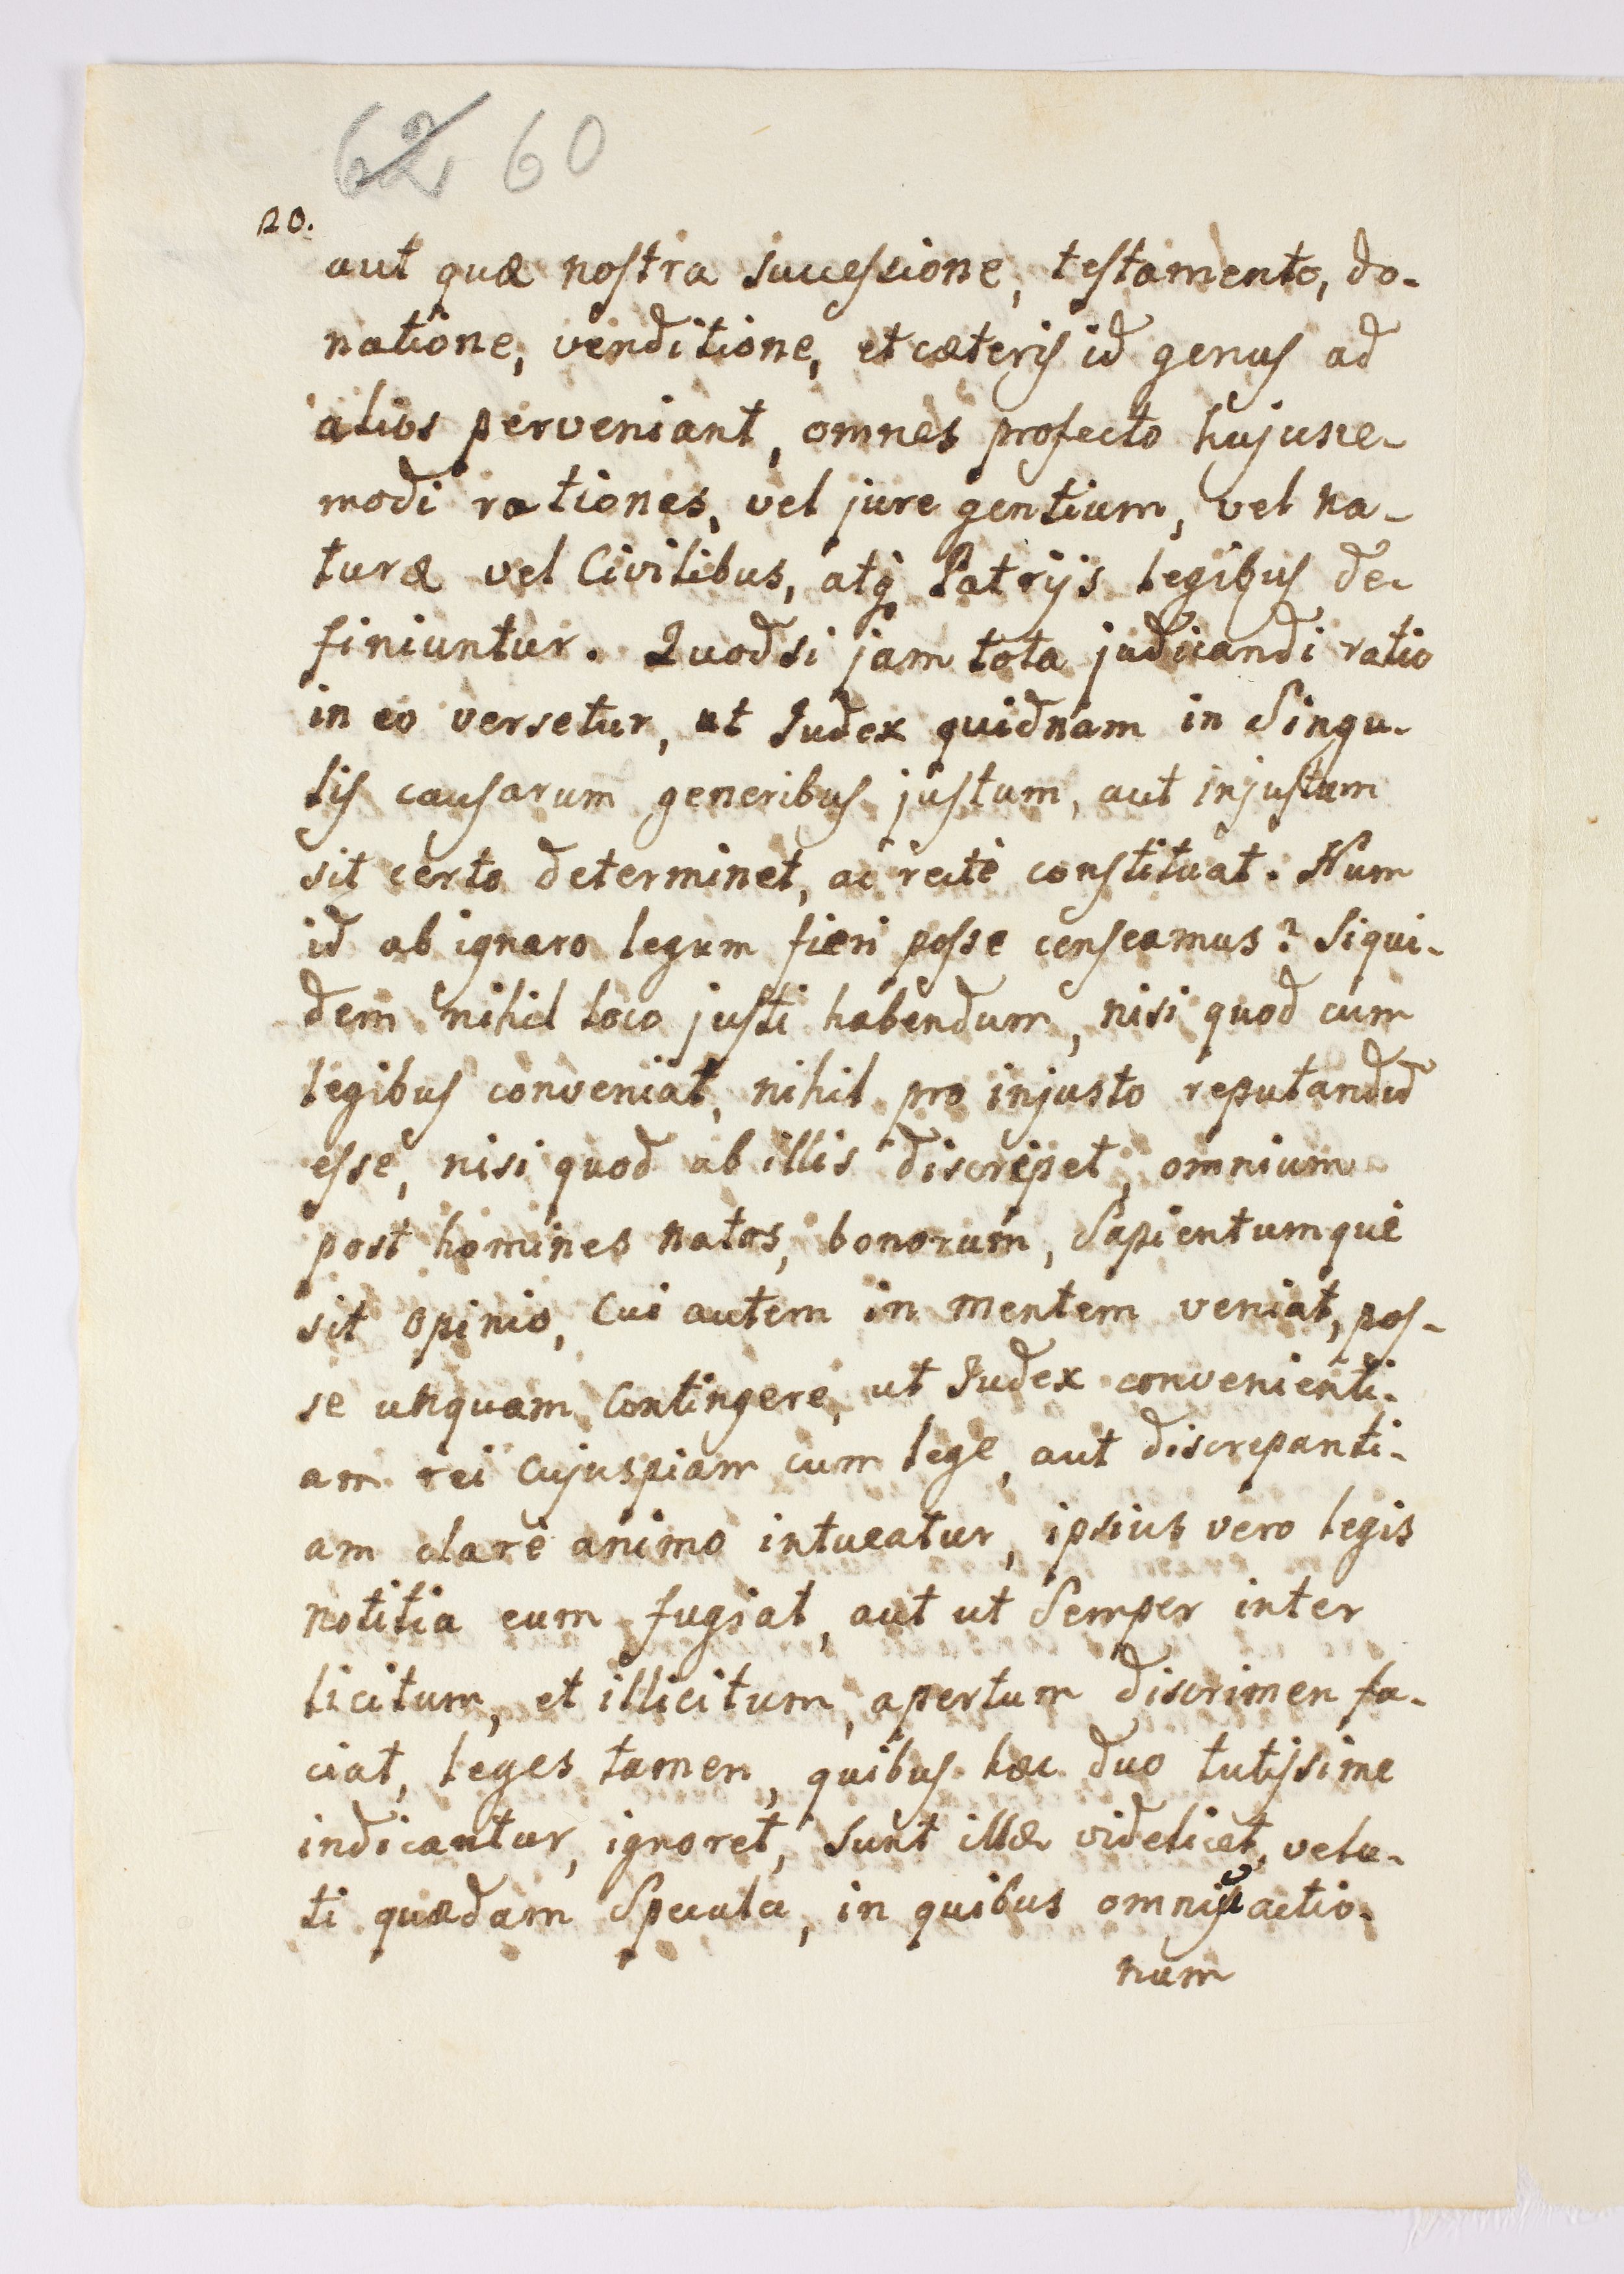 62 60
20.
aut quæ nostra successione, testamento, do-
natione, venditione, et cæteris id genus ad
alios perveniant, omnes profecto hujusce-
modi rationes, vel jure gentium, vel na-
turæ vel Civilibus, atq̀ Patrijs legibus de-
finiuntur. Quodsi jam tota judicandi ratio
in eo versetur, ut Judex quidnam in Singu-
lis causarum generibus justum, aut injustum
sit certo determinet, ac rectè constituat. Num
id ab ignaro legum fieri posse censeamus? Siqui-
dem nihil loco justi habendum, nisi quod cum
legibus conveniat, nihil pro injusto reputandū
esse, nisi quod ab illis discrepet, omnium
post homines natos, bonorum, Sapientumque
sit opinio, Cui autem in mentem veniat, pos-
se unquam Contingere, ut Judex convenienti-
am rei Cujuspiam cum lege, aut discrepanti-
am clare animo intueatur, ipsius vero legis
notitia eum fugiat, aut ut Semper inter
licitum, et illicitum, apertum discrimen fa-
ciat, leges tamen, quibus hæc duo tutissime
indicantur, ignoret, Sunt illæ videlicet, velu-
ti quædam Specula, in quibus omniū actio-
num